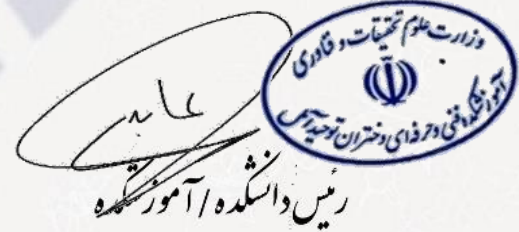 وزارت علوم تحقیقات و فناوری
آموزشکده فنی و حرفه‌ای دختران توحید آمل
عابدی
رئیس دانشکده / آموزشکده